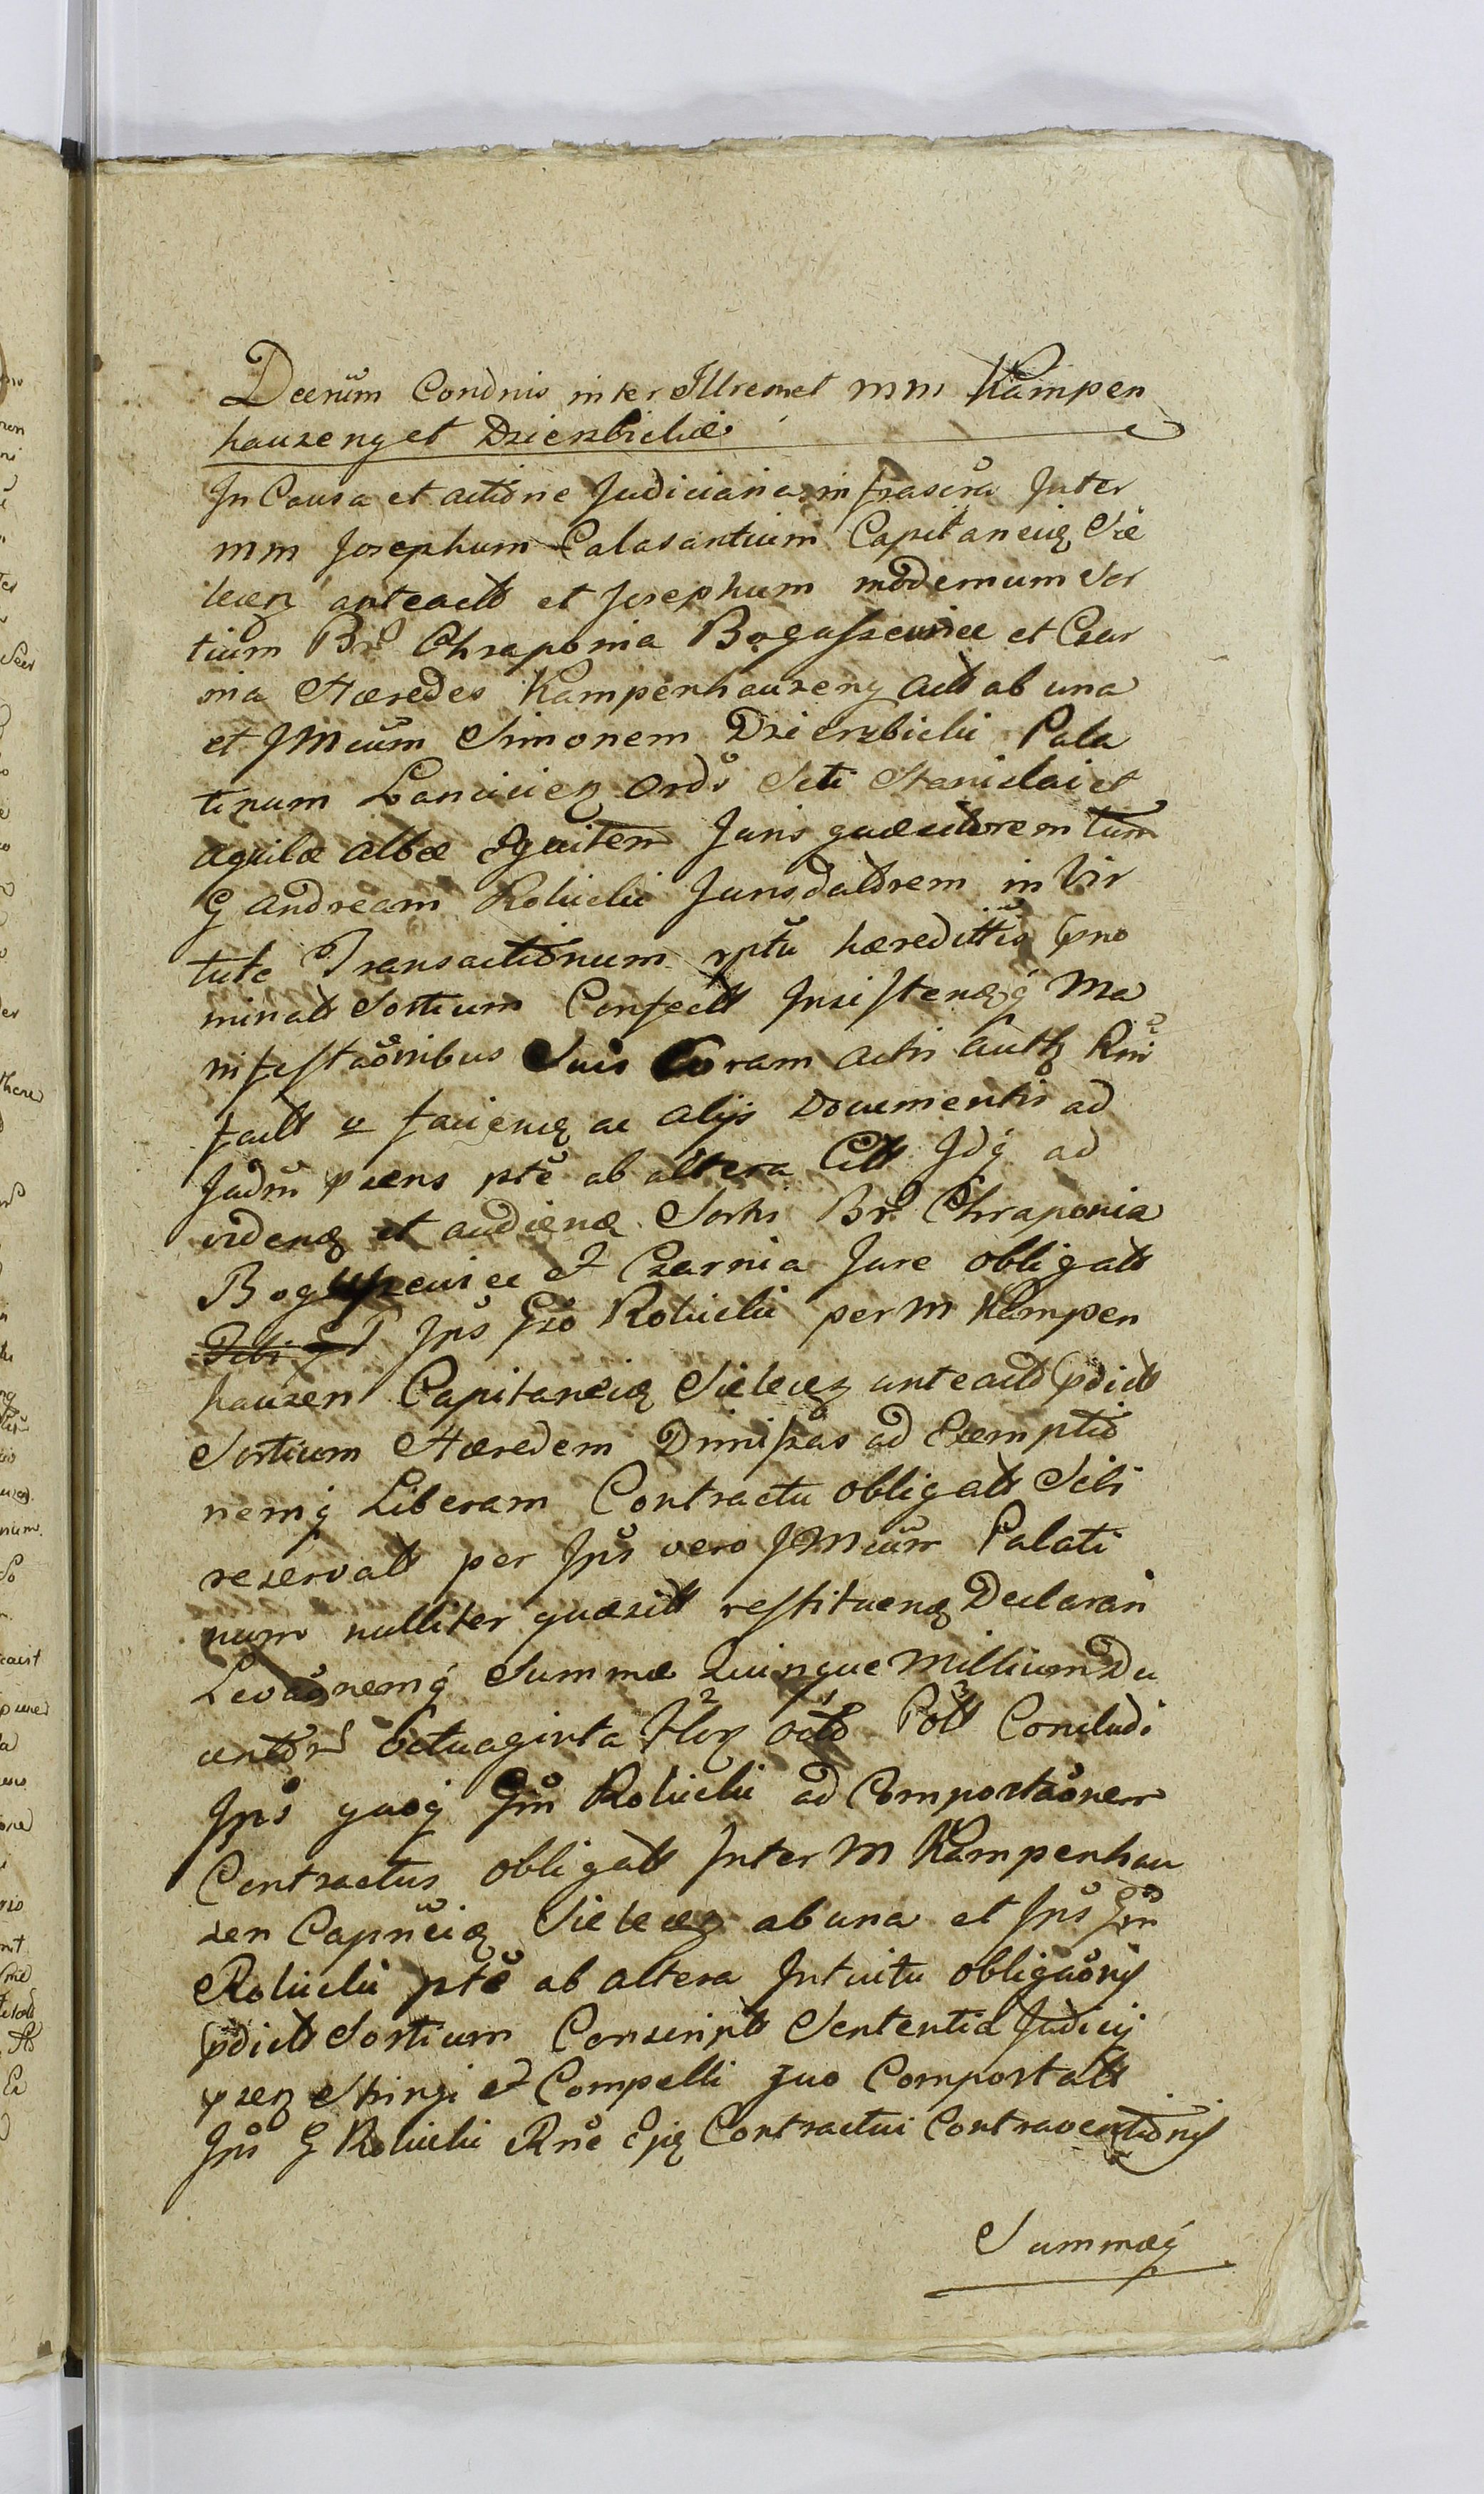 Decrūm Condnis inter Illremet mm Kampen
hauzeng et Dzierzbickie
In Causa et actione Judiciaria infrascra Inter
mm Josephum Calasantium Capitaneiq Sie
leceñ anteact et Josephum modernum Sor
tium Br Chraponia Boguszewice et Czar
nia Hæredes Kampenhauzeng act ab una
et JMcum Simonem Dzierzbicki Pala
tinum Lancicien Ords Scti Stanislai et
aquilæ albæ Equitem Juris quæsitorem tum
G Andream Rolicki Jurisdatorem in Vir
tute Transactionum rptu hæredittiq pno
minatt Sortium Confectt Insistenq Ma
nifestaonibus Suis Coram actis autt Rni
fact v facienq ac alijs Documentis ad
Jadm præns pte ab altera Citt Idq ad
videnq et audienq Sortis Br Chraponia
Boguszewice et Czarnia Jure obligatt
Ips Gso Rolicki per M Kampen
hauzen Capitaneiq Sieleceñ anteact pdictt
Sortium Hæredem Dnnipas ad Exemptio
nemq Liberam Contractu obligatt Sibi
reservatt per Ips vero JMcum Palati
num nulliter quæsitt restituenq Declarari
Levaonemq Summæ Quinque Millium Du
centor Octuaginta flor octo Poll Concludi
Ips quoq Gm Rolicki ad Comportaonem
Contractus obligatt Inter M Kampenhau
zen Capneiq Sieleceñ ab una et Ips Gm
Rolicki pte ab altera Intuitu obligaonis
pdictt Sortium Conscriptt Sententia Judicij
præn Stringi et Compelli quo Comportatt
Ips G Rolicki Rne Ejq Contractui Contraventionis
Summæq